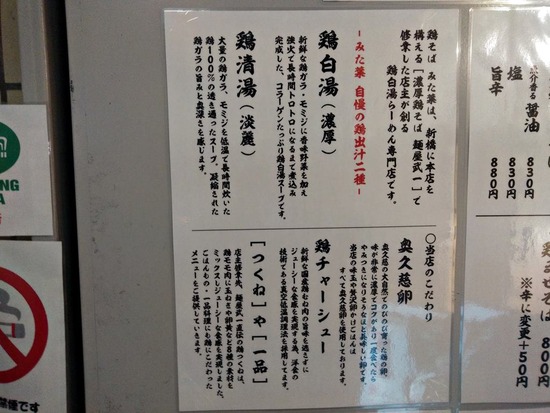 鶏そば みた葉は、新橋に本店を
構える【濃厚鶏そば 麺屋武一】で
修業した店主が創る
鶏白湯らーめん専門店です。
-みた葉 自慢の鶏出汁二種-
鶏白湯(濃厚)
新鮮な鶏ガラ・モミジに香味野菜を加え
強火で長時間トロトロになるまで煮込み
完成した、コラーゲンたっぷり鶏白湯スープです。
鶏清湯(淡麗)
大量の鶏ガラ、モミジを低温で長時間炊いた
鶏100%の透き通ったスープ。凝縮された
鶏ガラの旨みと奥深さを感じます。
〇当店のこだわり
奥久慈卵
奥久慈の大自然でのびのび育った鶏の卵。
味が非常に濃厚でコクがあり一度食べたら
やみつきになりそうなほど美味しい卵です。
当店の味玉・贅沢卵かけごはんは
すべて奥久慈卵を使用しております。
鶏チャーシュー
新鮮な国産鶏むね肉の旨味を逃さずに
ジューシーな食感を実現する為、洋食の
技術である真空低温調理法を採用してます。
[つくね]や[一品]
店主修業先、麺屋武一直伝の鶏つくねは、
鶏モモ肉に玉ねぎや卵黄など8種の素材を
ミックスしジューシーな食感を実現しました。
ごはんもの、一品料理にも鶏にこだわった
メニューをご提供していきます。
醤油
830円
塩
830円
旨辛
880円
800円
※辛に変更+50円
NG
A